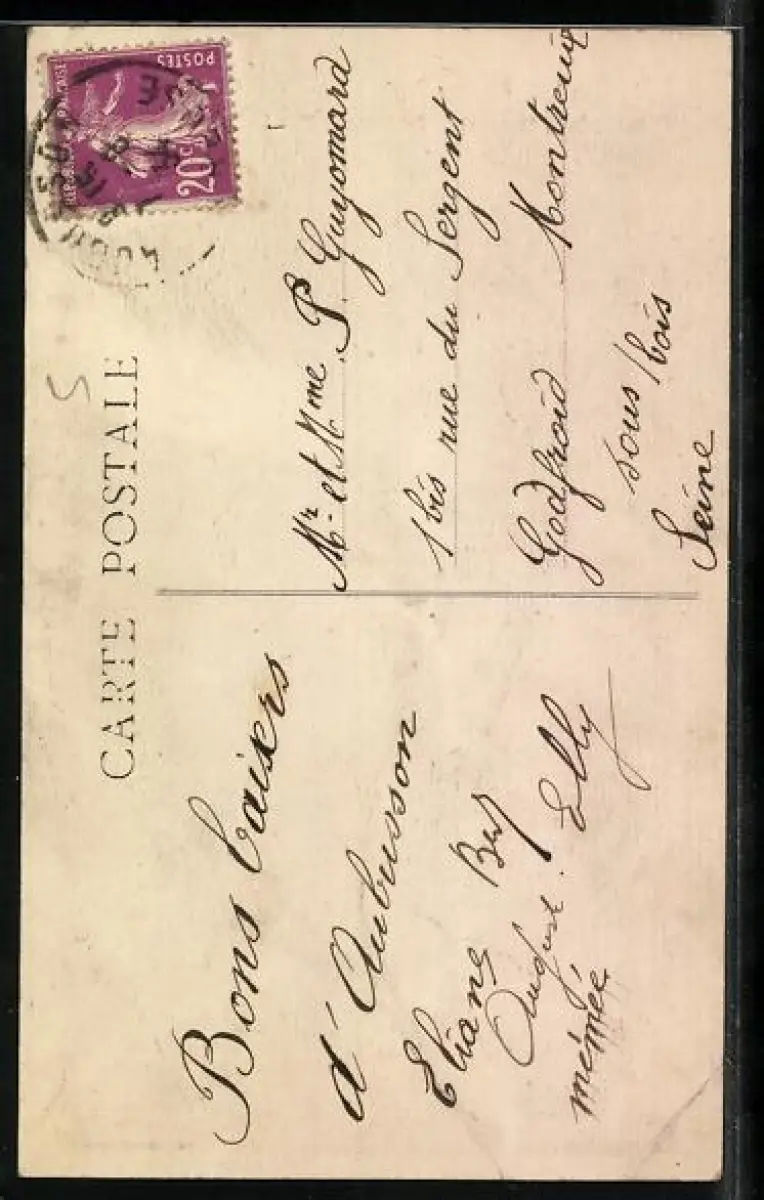 CARTE POSTALE
Bons baisers
d'Aubusson
Eliane
Elly
mémée
Mr et Mme P. Guyomard
1bis rue du Sergent
Godfroid Montreuil
sous/bois
Seine
POSTES
20c